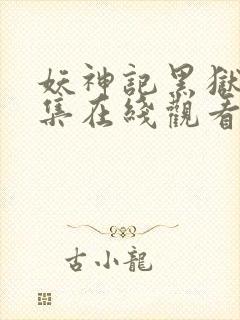 妖神記黑獄
集在綫觀看
古小龍